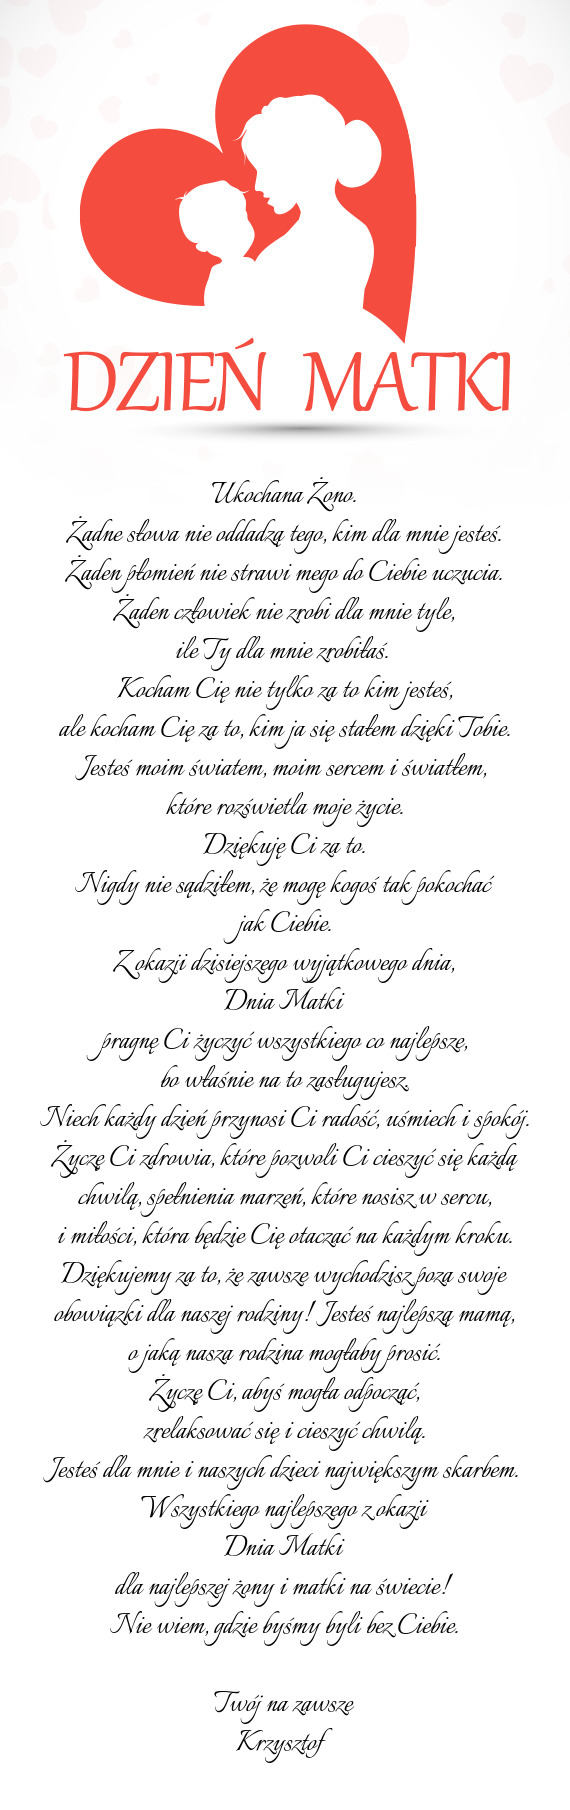 DZIEŃ MATKI
Ukochana Żono.
Żadne słowa nie oddadzą tego, kim dla mnie jesteś.
Żaden płomień nie strawi mego do Ciebie uczucia.
Żaden człowiek nie zrobi dla mnie tyle,
ile Ty dla mnie zrobiłaś.
Kocham Cię nie tylko za to kim jesteś,
ale kocham Cię za to, kim ja się stałem dzięki Tobie.
Jesteś moim światem, moim sercem i światłem,
które rozświetla moje życie.
Dziękuję Ci za to.
Nigdy nie sądziłem, że mogę kogoś tak pokochać
jak Ciebie.
Z okazji dzisiejszego wyjątkowego dnia,
Dnia Matki
pragnę Ci życzyć wszystkiego co najlepsze,
bo właśnie na to zasługujesz.
Niech każdy dzień przynosi Ci radość, uśmiech i spokój.
Życzę Ci zdrowia, które pozwoli Ci cieszyć się każdą
chwilą, spełnienia marzeń, które nosisz w sercu,
i miłości, która będzie Cię otaczać na każdym kroku.
Dziękujemy za to, że zawsze wychodzisz poza swoje
obowiązki dla naszej rodziny! Jesteś najlepszą mamą,
o jaką nasza rodzina mogłaby prosić.
Życzę Ci, abyś mogła odpocząć,
zrelaksować się i cieszyć chwilą.
Jesteś dla mnie i naszych dzieci największym skarbem.
Wszystkiego najlepszego z okazji
Dnia Matki
dla najlepszej żony i matki na świecie!
Nie wiem, gdzie byśmy byli bez Ciebie.
Twój na zawsze
Krzysztof